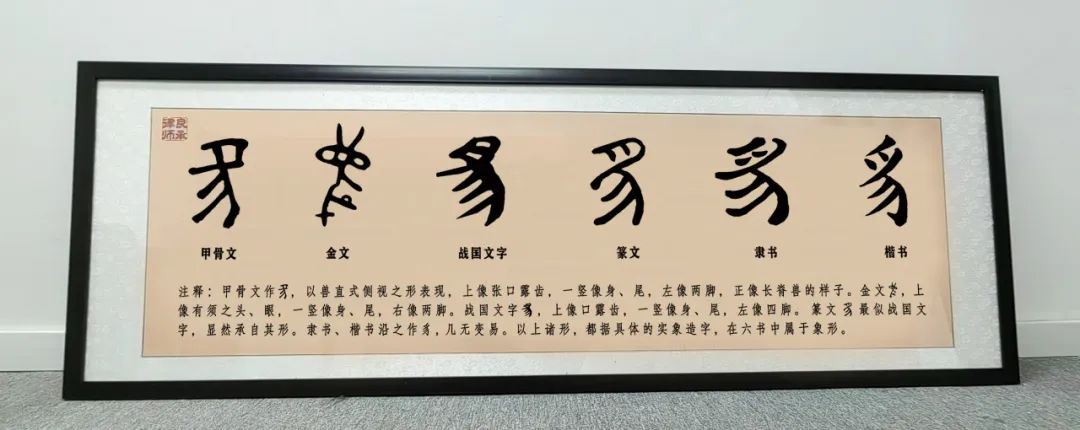 良承
律师
豸 豸 豸 豸 豸 豸
甲骨文 金文 战国文字 篆文 隶书 楷书
注释：甲骨文作豸，以善直式侧视之形表现，上像张口露齿，一竖像身、尾，左像两脚，正像长脊善的样子。金文豸，上
像有须之头、眼，一竖像身、尾，右像两脚。战国文字豸，上像口露齿，一竖像身、尾，左像四脚。篆文豸最似战国文
字，显然承自其形。隶书、楷书沿之作豸，几无变易。以上诸形，都据具体的实象造字，在六书中属于象形。